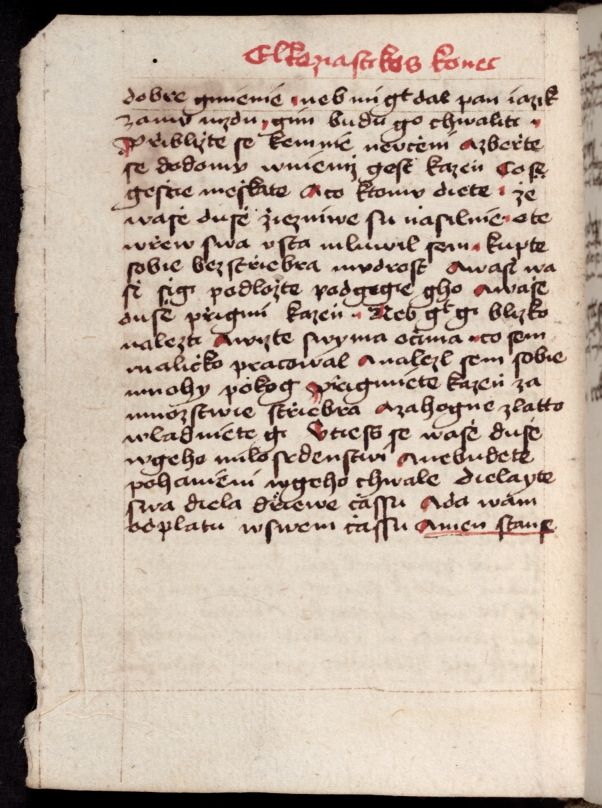 Ekkoziastikos konec
dobre gmienie neb mi gt dal pan iazik
za mu mzdu gim budu go chwaliti
přibližte se kemnie nevčení A zbeřte
se do domu wniemž gest kazeň Co gt
gestie mieškate A co ktomu diete že
wašě dušě žiezniwe su násilnie ote
wřew swa vsta mluwil sem kupte
sobie bez střiebra mudrost A waši wa
ši šigi podložte pod gegie gho A wašě
dušě přigmi kazeň Neb gt gi blizko
nalezti A wizte swyma očima co sem
maličko pracowal A nalezl sem sobie
mnohy pokog přigmiete kazeň za
množstwie střiebra A za hogne zlatto
wladniete gi Vties se wašě dušě
w geho milosrdenstwi A nebudete
pohanieni w geho chwale dielayte
swa diela dřiewe čassu A da wám
odplatu w swem čassu Amen stanse